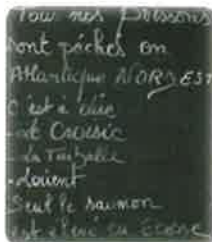 Tous nos poissons
sont pêchés en
Atlantique NORD EST
C'est à dire
- Le Croisic
- La Turballe
- Lorient
Seul le saumon
est élevé en Ecosse